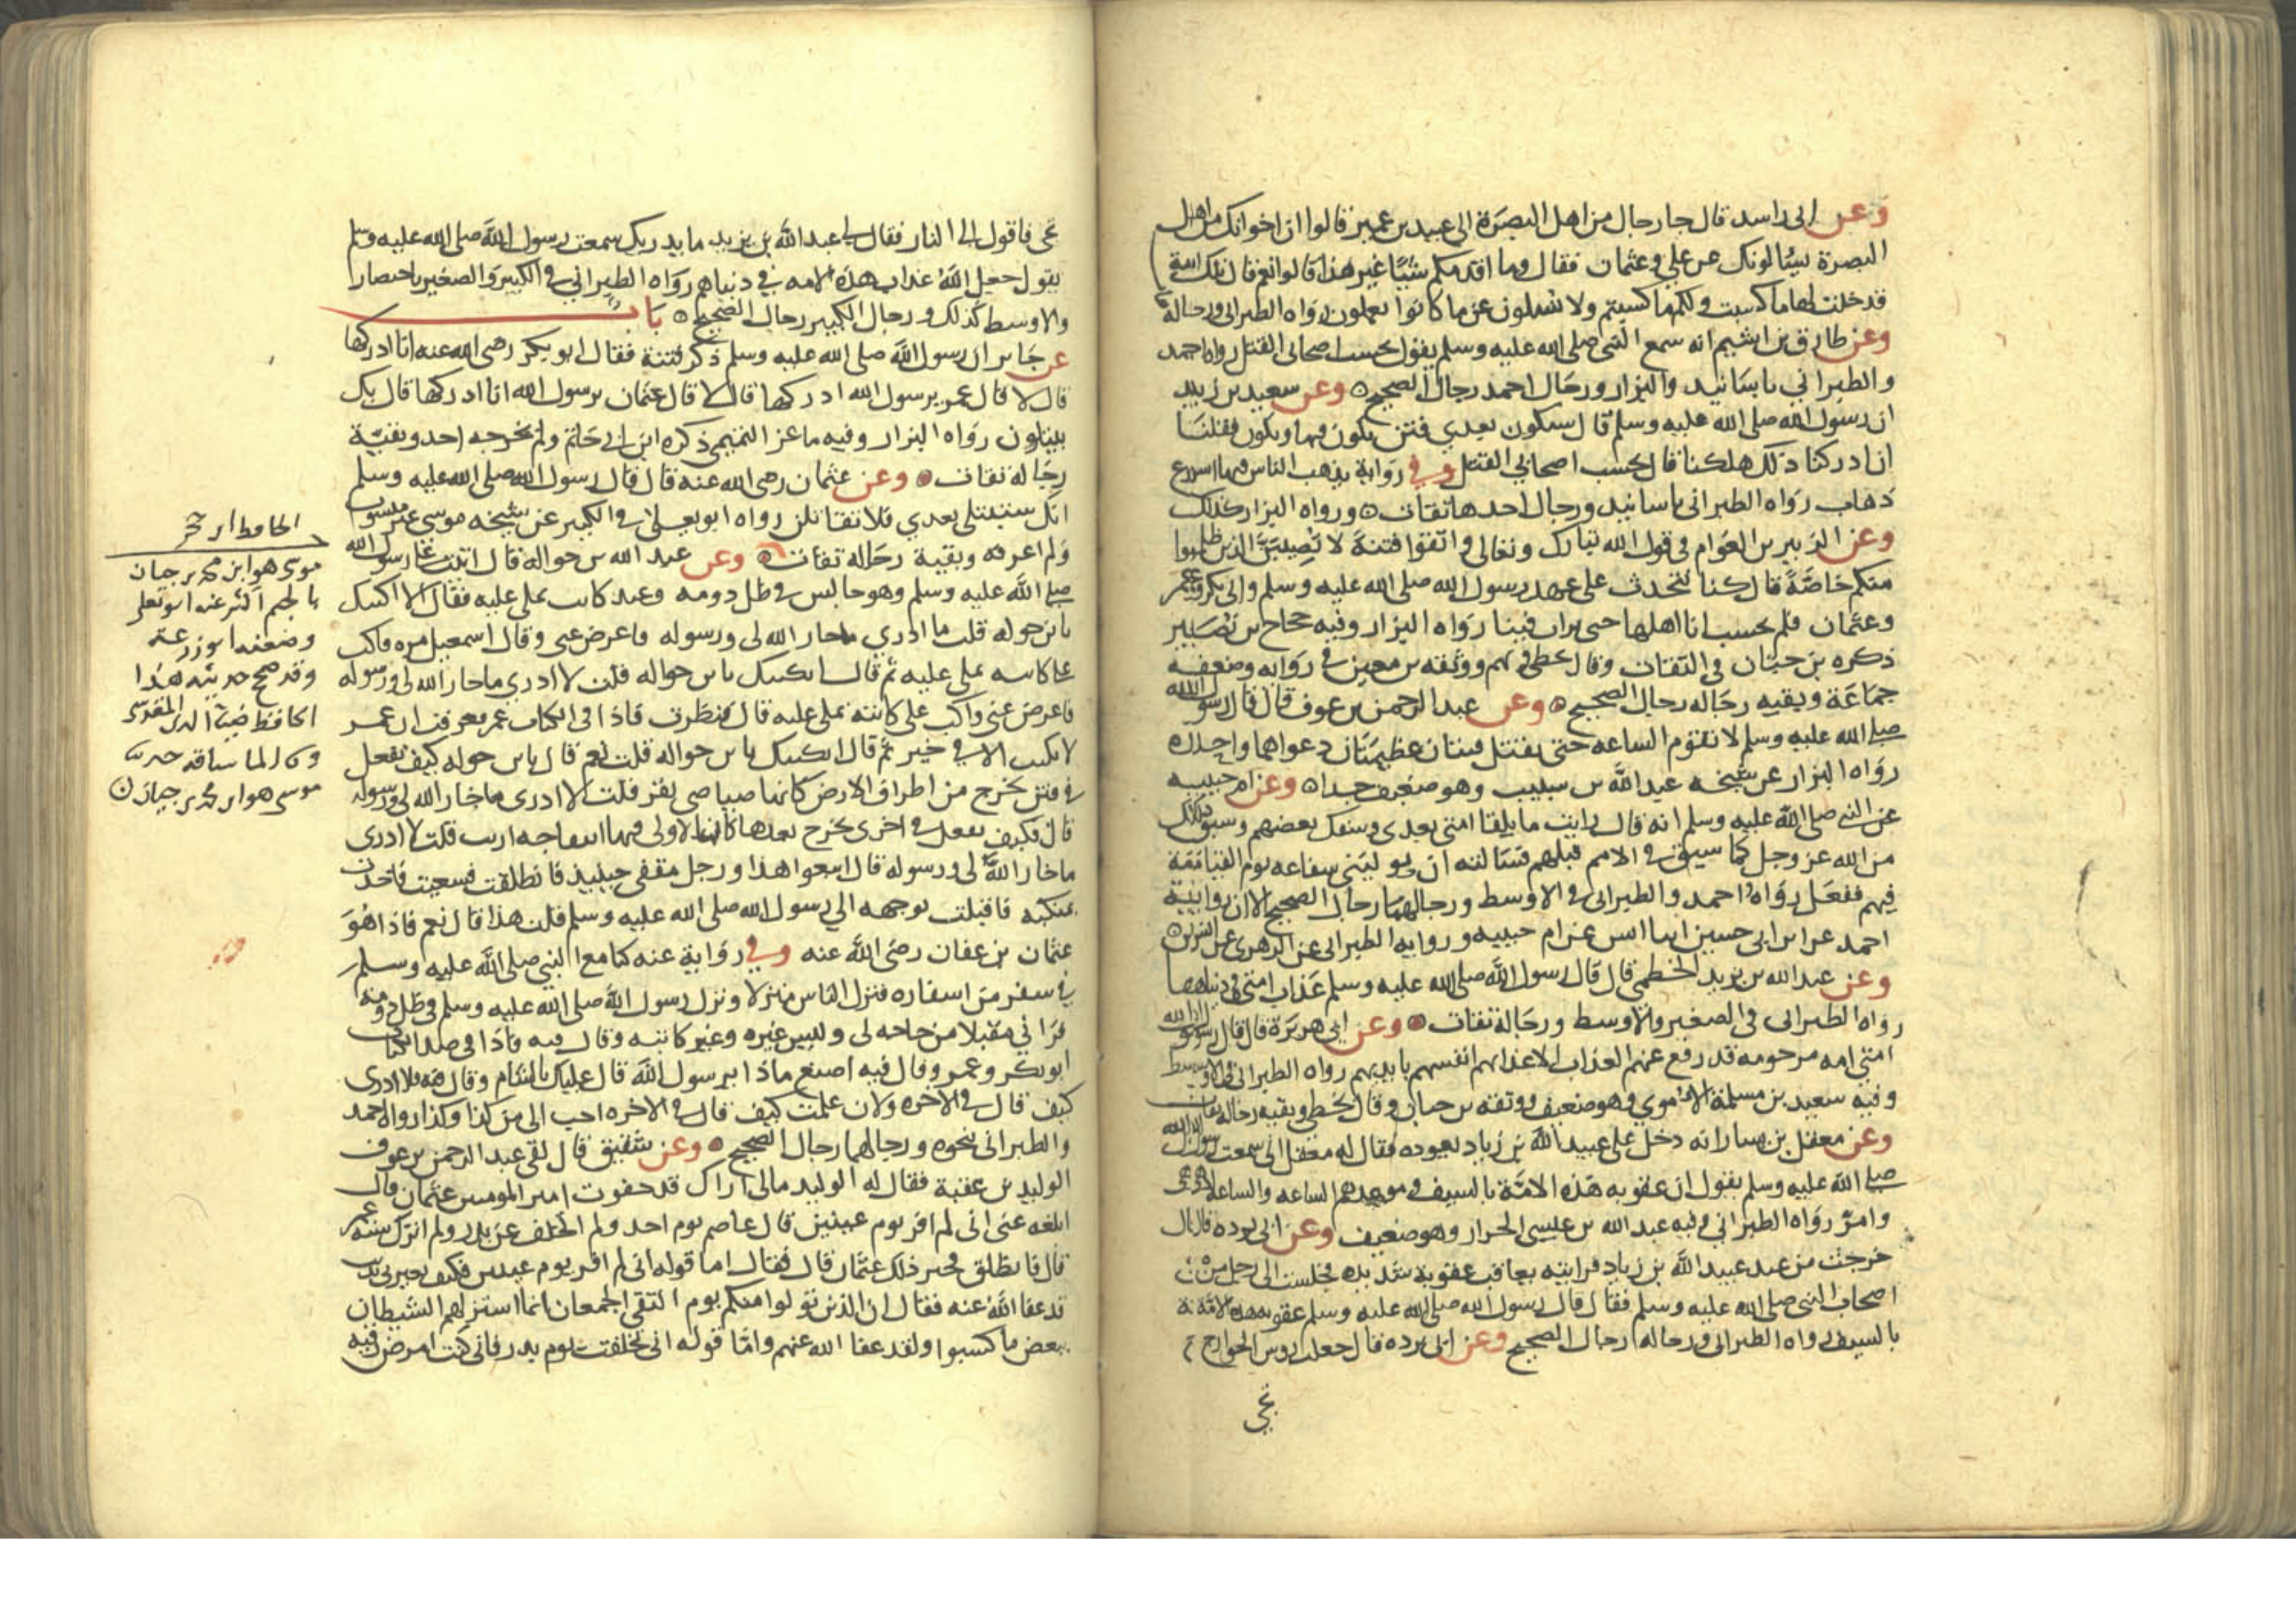 وعن ابي راسد قال جا رجال من اهل البصرة الى عبيد بن عمير فقالوا ان اخوانك من اهل
البصرة يسالونك عن علي وعثمان فقال وما اقدمكم شيا غير هذا قالوا نعم قال تلك امة
قد خلت لها ما كسبت ولكم ما كسبتم ولا تسلون عن ما كانوا يعملون رواه الطبراني ورجاله
وعن طارق بن اشيم انه سمع النبي صلى الله عليه وسلم يقول بحسب اصحابي القتل رواه احمد
والطبراني باسانيد والبزار ورجال احمد رجال الصحيح وعن سعيد بن زيد
ان رسول الله صلى الله عليه وسلم قال ستكون بعدي فتن يكون فيها ويكون فقلنا
ان ادركنا ذلك هلكنا قال بحسب اصحابي القتل وفي رواية يذهب الناس فيها اسرع
ذهاب رواه الطبراني باسانيد ورجال احدها ثقات ورواه البزار كذلك
وعن الزبير بن العوام في قول الله تبارك وتعالى واتقوا فتنة لا تصيبن الذين ظلموا
منكم خاصة قال كنا نتحدث على عهد رسول الله صلى الله عليه وسلم وابي بكر وعمر
وعثمان فلم نحسب انا اهلها حتى نزلت فينا رواه البزار وفيه حجاج بن نصير
ذكره بن حبان في الثقات وقال يخطي ويهم ووثقه بن معين في رواية وضعفه
جماعة وبقيه رجاله رجال الصحيح وعن عبد الرحمن بن عوف قال قال رسول الله
صلى الله عليه وسلم لا تقوم الساعه حتى يقتتل فيتان عظيمتان دعواهما واحدة
رواه البزار عن شيخه عبد الله بن شبيب وهو ضعيف جدا وعن ام حبيبه
عن النبي صلى الله عليه وسلم انه قال رايت ما يلقا امتي بعدي وسفك بعضهم وسبق ذلك
من الله عز وجل كما سبق في الامم قبلهم فسالته ان يوليني شفاعه يوم القيامة
فيهم ففعل رواه احمد والطبراني في الاوسط ورجالهما رجال الصحيح الا ان رواية
احمد عن ابن ابي حسين انبا انس عن ام حبيبه ورواية الطبراني عن الزهري عن انس
وعن عبد الله بن يزيد الخطمي قال قال رسول الله صلى الله عليه وسلم عذاب امتي في دنياها
رواه الطبراني في الصغير والاوسط ورجاله ثقات وعن ابي هريرة قال قال رسول الله
امتي امه مرحومه قد رفع عنهم العذاب الا عذابهم انفسهم بايديهم رواه الطبراني في الاوسط
وفيه سعيد بن مسلمة الاموي وهو ضعيف ووثقه بن حبان وقال يخطي وبقيه رجاله ثقات
وعن معقل بن يسار انه دخل على عبيد الله بن زياد يعوده فقال له معقل اني سمعت رسول الله
صلى الله عليه وسلم يقول ان عقوبه هذه الامة بالسيف وموعدهم الساعه والساعه ادهى
وامر رواه الطبراني وفيه عبد الله بن عيسى الخزاز وهو ضعيف وعن ابي برده قال
خرجت من عند عبيد الله بن زياد فرايته يعاقب عقوبة شديده فجلست الى رجل من
اصحاب النبي صلى الله عليه وسلم فقال قال رسول الله صلى الله عليه وسلم عقوبه هذه الامة
بالسيف رواه الطبراني ورجاله رجال الصحيح وعن ابي برده قال جعلت روس الخوارج
تجي
تجي فاقول الى النار فقال لي عبد الله بن يزيد ما يدريك سمعت رسول الله صلى الله عليه وسلم
يقول جعل الله عذاب هذه الامه في دنياهم رواه الطبراني في الكبير والصغير باختصار
والاوسط كذلك ورجال الكبير رجال الصحيح باب
عن جابر ان رسول الله صلى الله عليه وسلم ذكر فتنة فقال ابو بكر رضي الله عنه انا ادركها
قال لا قال عمر يرسول الله ادركها قال لا قال عثمان يرسول الله انا ادركها قال بك
يبتلون رواه البزار وفيه ماعز التميمي ذكره ابن ابي حاتم ولم يخرجه احد وبقية
رجاله ثقات وعن عثمان رضي الله عنه قال قال رسول الله صلى الله عليه وسلم
انك ستبتلى بعدي فلا تقاتلن رواه ابو يعلى في الكبير عن شيخه موسى غير منسوب
ولم اعرفه وبقية رجاله ثقات وعن عبد الله بن حواله قال اتيت رسول الله
صلى الله عليه وسلم وهو جالس في ظل دومه وعنده كاتب يملي عليه فقال الا اكتبك
يا بن حوله قلت ما ادري ما خار الله لي ورسوله فاعرض عني وقال اسمعيل مره فاكب
على كاتبه يملي عليه ثم قال انكتبك يا بن حواله قلت لا ادري ما خار الله لي ورسوله
فاعرض عني واكب على كاتبه يملي عليه قال فنظرت فاذا في الكتاب عمر فعرفت ان عمر
لا يكتب الا في خير ثم قال انكتبك يا بن حواله قلت نعم قال يا بن حوله كيف تفعل
في فتن تخرج من اطراف الارض كانها صياصي بقر قلت لا ادري ما خار الله لي ورسوله
قال فكيف تفعل في اخرى تخرج بعدها كان الاولى فيها انتفاجه ارنب قلت لا ادري
ما خار الله لي ورسوله قال اتبعوا هذا ورجل مقفي حينيذ فانطلقت فسعيت فاخذت
بمنكبه فاقبلت بوجهه الى رسول الله صلى الله عليه وسلم قلت هذا قال نعم فاذا هو
عثمان بن عفان رضي الله عنه وفي رواية عنه كنا مع النبي صلى الله عليه وسلم
في سفر من اسفاره فنزل الناس منزلا ونزل رسول الله صلى الله عليه وسلم في ظل دومة
فراني مقبلا من حاجه لي وليس غيره وغير كاتبه وقال فيه فاذا في صدر الكتاب
ابو بكر وعمر وقال فيه اصنع ماذا يرسول الله قال عليك بالشام وقال فيه فلا ادري
كيف قال في الاخره ولان علمت كيف قال في الاخره احب الي من كذا وكذا رواه احمد
والطبراني بنحوه ورجالهما رجال الصحيح وعن شقيق قال لقي عبد الرحمن بن عوف
الوليد بن عقبة فقال له الوليد مالي اراك قد جفوت امير المومنين عثمان قال
ابلغه عني اني لم افر يوم عينين قال عاصم يوم احد ولم اتخلف عن بدر ولم اترك سنة عمر
قال فانطلق فخبر ذلك عثمان قال فقال اما قوله اني لم افر يوم عينين فكيف يعيرني بذنب
قد عفا الله عنه فقال ان الذين تولوا منكم يوم التقى الجمعان انما استزلهم الشيطان
ببعض ما كسبوا ولقد عفا الله عنهم واما قوله اني تخلفت يوم بدر فاني كنت امرض رقيه
الحافظ ابن حجر
موسى هو ابن محمد بن حيان
بالجيم اكثر عنه ابو يعلى
وضعفه ابو زرعة
وقد صحح حديثه هذا
الحافظ ضيا الدين المقدسي
وقال لما ساقه حدث
موسى هو ابن محمد بن حيان